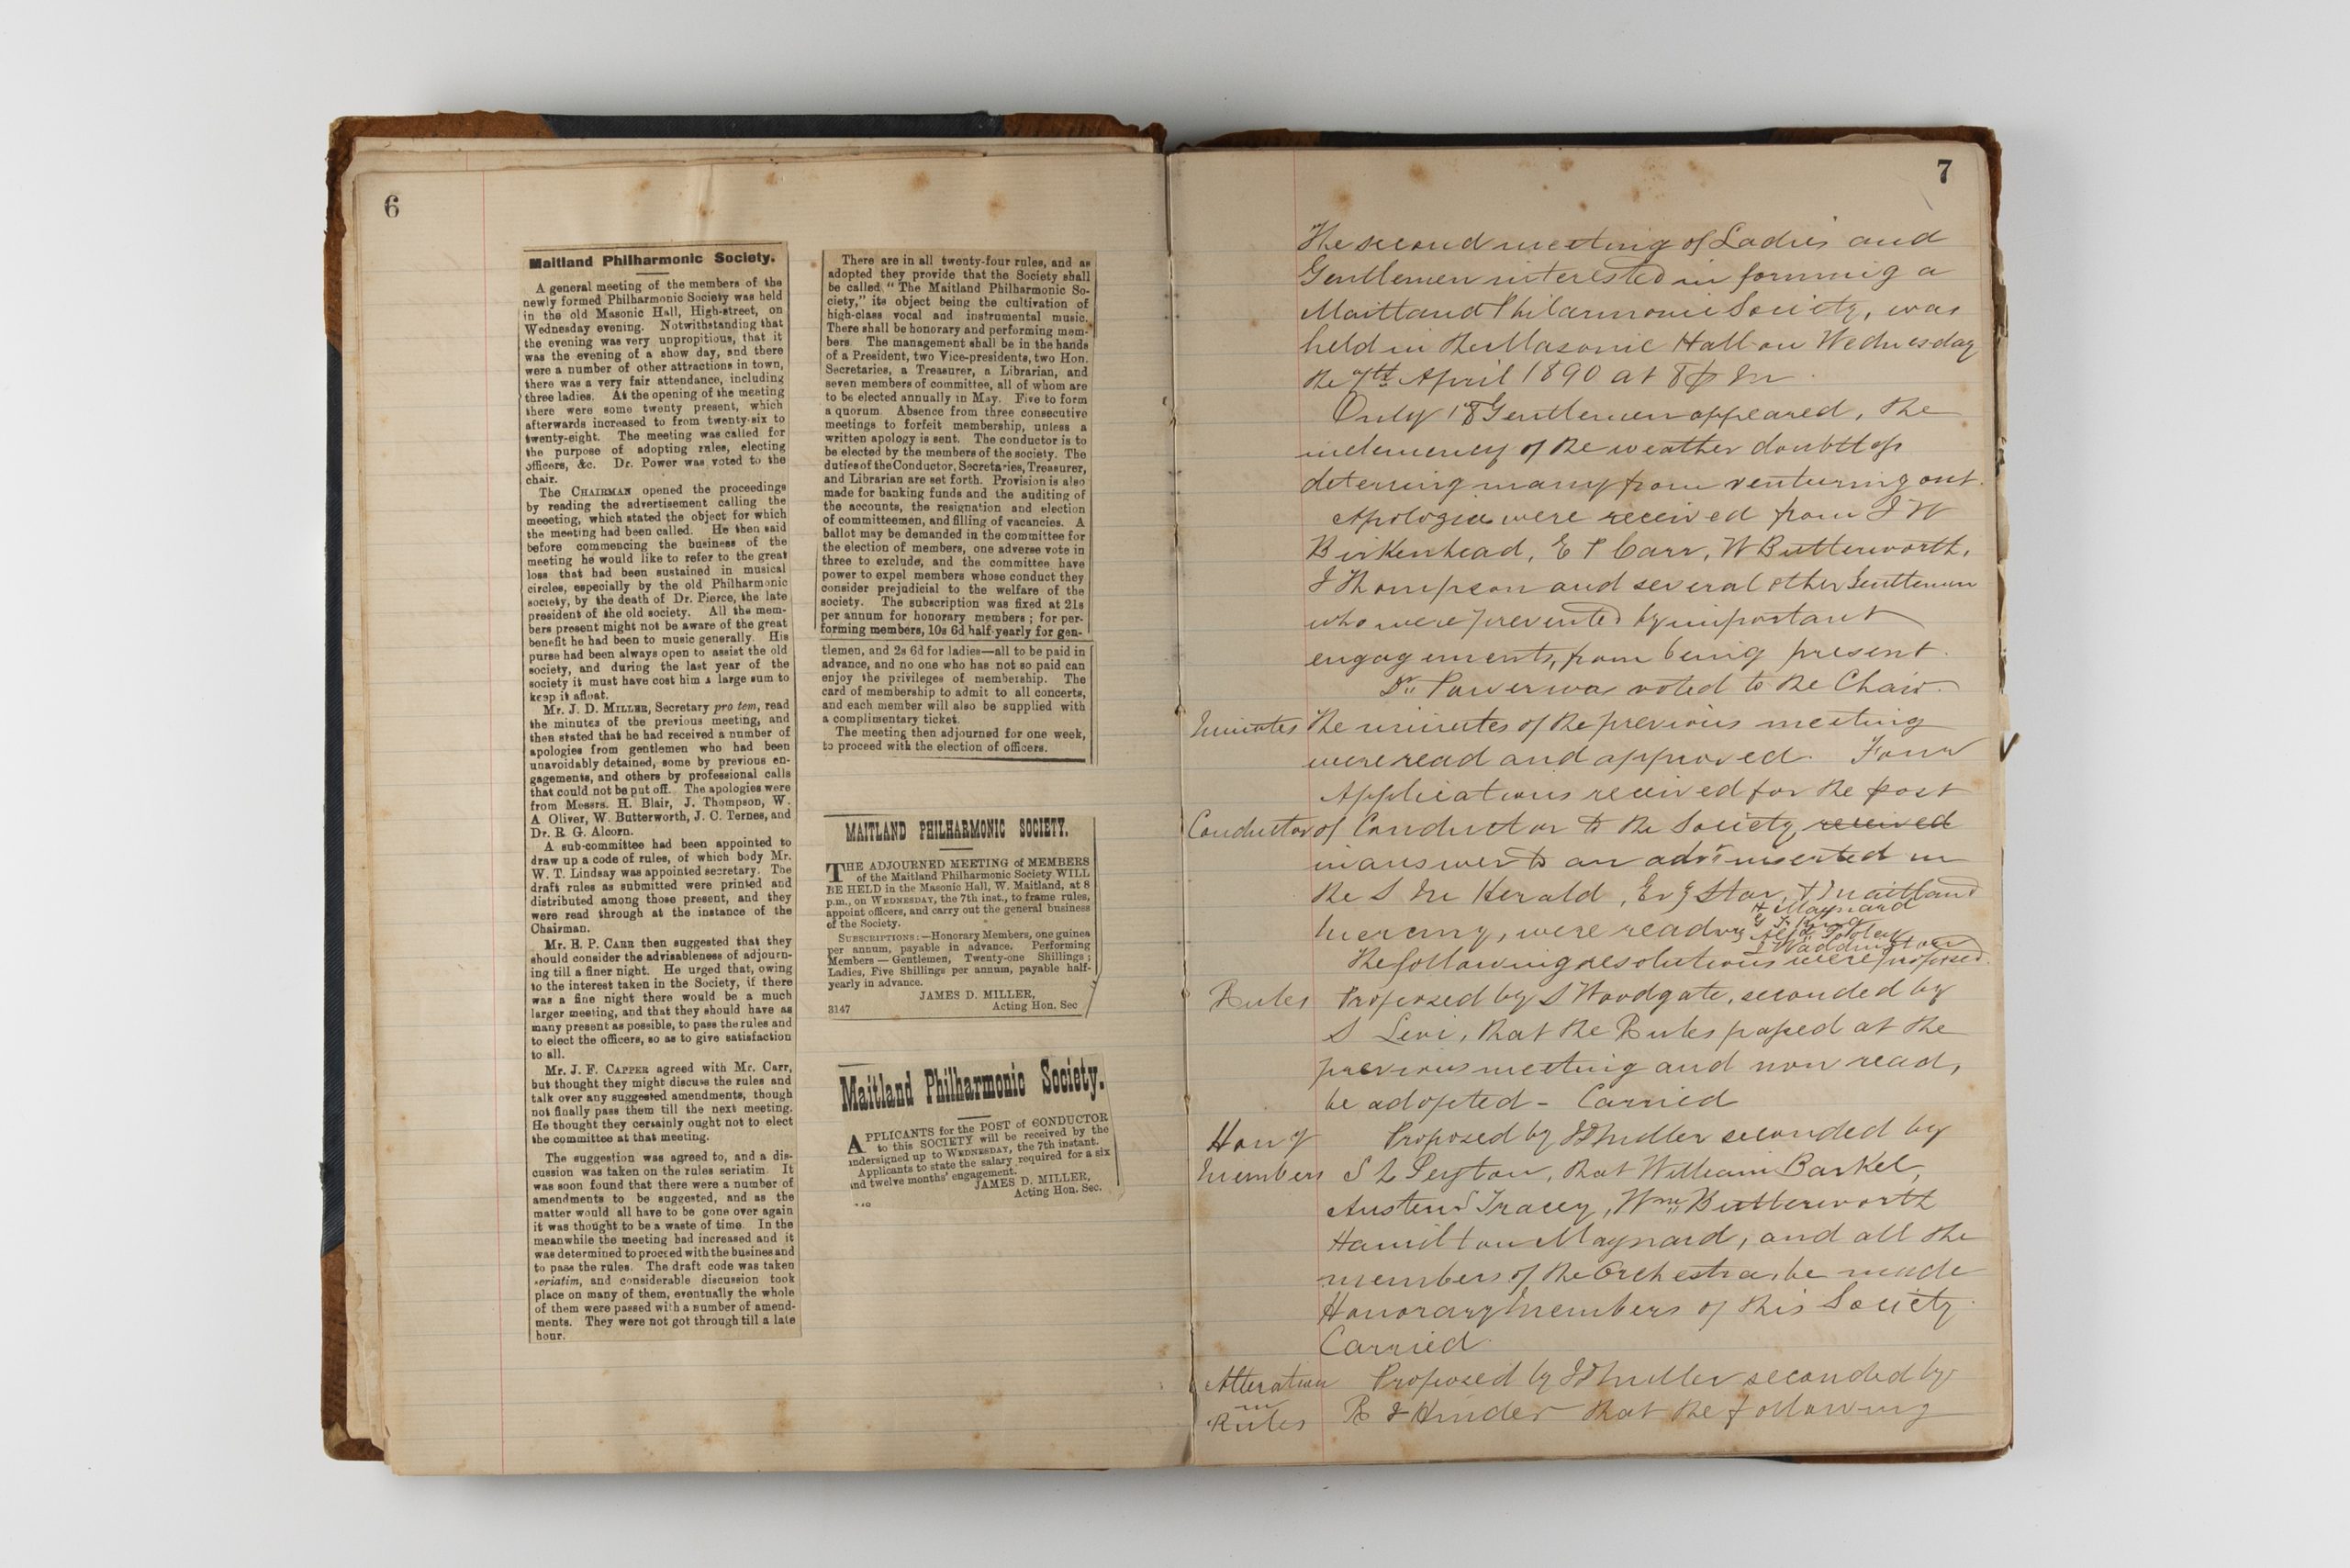 6
Maitland Philharmonic Society.
A general meeting of the members of the
newly formed Philharmonic Society was held
in the old Masonic Hall, High-street, on
Wednesday evening. Notwithstanding that
the evening was very unpropitious, that it
was the evening of a show day, and there
were a number of other attractions in town,
there was a very fair attendance, including
three ladies. At the opening of the meeting
there were some twenty present, which
afterwards increased to from twenty-six to
twenty-eight. The meeting was called for
the purpose of adopting rules, electing
officers, &c. Dr. Power was voted to the
chair.
The CHAIRMAN opened the proceedings
by reading the advertisement calling the
meeeting, which stated the object for which
the meeting had been called. He then said
before commencing the business of the
meeting he would like to refer to the great
loss that had been sustained in musical
circles, especially by the old Philharmonic
society, by the death of Dr. Pierce, the late
president of the old society. All the mem-
bers present might not be aware of the great
benefit he had been to music generally. His
purse had been always open to assist the old
society, and during the last year of the
society it must have cost him a large sum to
keep it afloat.
Mr. J. D. MILLER, Secretary pro tem, read
the minutes of the previous meeting, and
then stated that he had received a number of
apologies from gentlemen who had been
unavoidably detained, some by previous en-
gagements, and others by professional calls
that could not be put off. The apologies were
from Messrs. H. Blair, J. Thompson, W.
A Oliver, W. Butterworth, J. C. Ternes, and
Dr. R G. Alcorn.
A sub-committee had been appointed to
draw up a code of rules, of which body Mr.
W. T. Lindsay was appointed secretary. The
draft rules as submitted were printed and
distributed among those present, and they
were read through at the instance of the
Chairman.
Mr. E. P. CARR then suggested that they
should consider the advisableness of adjourn-
ing till a finer night. He urged that, owing
to the interest taken in the Society, if there
was a fine night there would be a much
larger meeting, and that they should have as
many present as possible, to pass the rules and
to elect the officers, so as to give satisfaction
to all.
Mr. J. F. CAPPER agreed with Mr. Carr,
but thought they might discuss the rules and
talk over any suggested amendments, though
not finally pass them till the next meeting.
He thought they certainly ought not to elect
the committee at that meeting.
The suggestion was agreed to, and a dis-
cussion was taken on the rules seriatim. It
was soon found that there were a number of
amendments to be suggested, and as the
matter would all have to be gone over again
it was thought to be a waste of time. In the
meanwhile the meeting had increased and it
was determined to proceed with the busines and
to pass the rules. The draft code was taken
seriatim, and considerable discussion took
place on many of them, eventually the whole
of them were passed with a number of amend-
ments. They were not got through till a late
hour.
There are in all twenty-four rules, and as
adopted they provide that the Society shall
be called "The Maitland Philharmonic So-
ciety," its object being the cultivation of
high-class vocal and instrumental music.
There shall be honorary and performing mem-
bers. The management shall be in the hands
of a President, two Vice-presidents, two Hon.
Secretaries, a Treasurer, a Librarian, and
seven members of committee, all of whom are
to be elected annually in May. Five to form
a quorum. Absence from three consecutive
meetings to forfeit membership, unless a
written apology is sent. The conductor is to
be elected by the members of the society. The
duties of the Conductor, Secretaries, Treasurer,
and Librarian are set forth. Provision is also
made for banking funds and the auditing of
the accounts, the resignation and election
of committeemen, and filling of vacancies. A
ballot may be demanded in the committee for
the election of members, one adverse vote in
three to exclude, and the committee have
power to expel members whose conduct they
consider prejudicial to the welfare of the
society. The subscription was fixed at 21s
per annum for honorary members; for per-
forming members, 10s 6d half-yearly for gen-
tlemen, and 2s 6d for ladies—all to be paid in
advance, and no one who has not so paid can
enjoy the privileges of membership. The
card of membership to admit to all concerts,
and each member will also be supplied with
a complimentary ticket.
The meeting then adjourned for one week,
to proceed with the election of officers.
MAITLAND PHILHARMONIC SOCIETY.
THE ADJOURNED MEETING of MEMBERS
of the Maitland Philharmonic Society WILL
BE HELD in the Masonic Hall, W. Maitland, at 8
p.m., on WEDNESDAY, the 7th inst., to frame rules,
appoint officers, and carry out the general business
of the Society.
SUBSCRIPTIONS:—Honorary Members, one guinea
per annum, payable in advance. Performing
Members—Gentlemen, Twenty-one Shillings;
Ladies, Five Shillings per annum, payable half-
yearly in advance.
JAMES D. MILLER,
3147 Acting Hon. Sec
Maitland Philharmonic Society.
APPLICANTS for the POST of CONDUCTOR
to this SOCIETY will be received by the
undersigned up to WEDNESDAY, the 7th instant.
Applicants to state the salary required for a six
and twelve months' engagement.
JAMES D. MILLER,
Acting Hon. Sec.
7
The second meeting of Ladies and
Gentlemen interested in forming a
Maitland Philarmonic Society, was
held in the Masonic Hall on Wednesday
the 7th April 1890 at 8 p m.
Only 18 Gentlemen appeared, the
inclemency of the weather doubtless
deterring many from venturing out.
Apologies were received from J W
Birkenhead, E P Carr, W Butterworth,
J Thompson and several other Gentlemen
who were prevented by important
engagements, from being present.
Dr Power was voted to the Chair.
Minutes The minutes of the previous meeting
were read and approved. Four
Applications received for the post
Conductor of Conductor to the Society received
in answer to an advt inserted in
the S M Herald, Evg Star, & Maitland
Mercury, were read viz H Maynard
The following resolutions were proposed.
Rules Proposed by S Woodgate, seconded by
S Levi, that the Rules passed at the
previous meeting and now read,
be adopted - Carried
Hony Proposed by J D Miller seconded by
Members S L Peyton, that William Barkel,
Austend Tracey, Wm Butterworth
Hamilton Maynard, and all the
members of the Orchestra, be made
Honorary Members of this Society.
Carried.
Alteration Proposed by J D Miller seconded by
in
Rules R J Kinder that the following